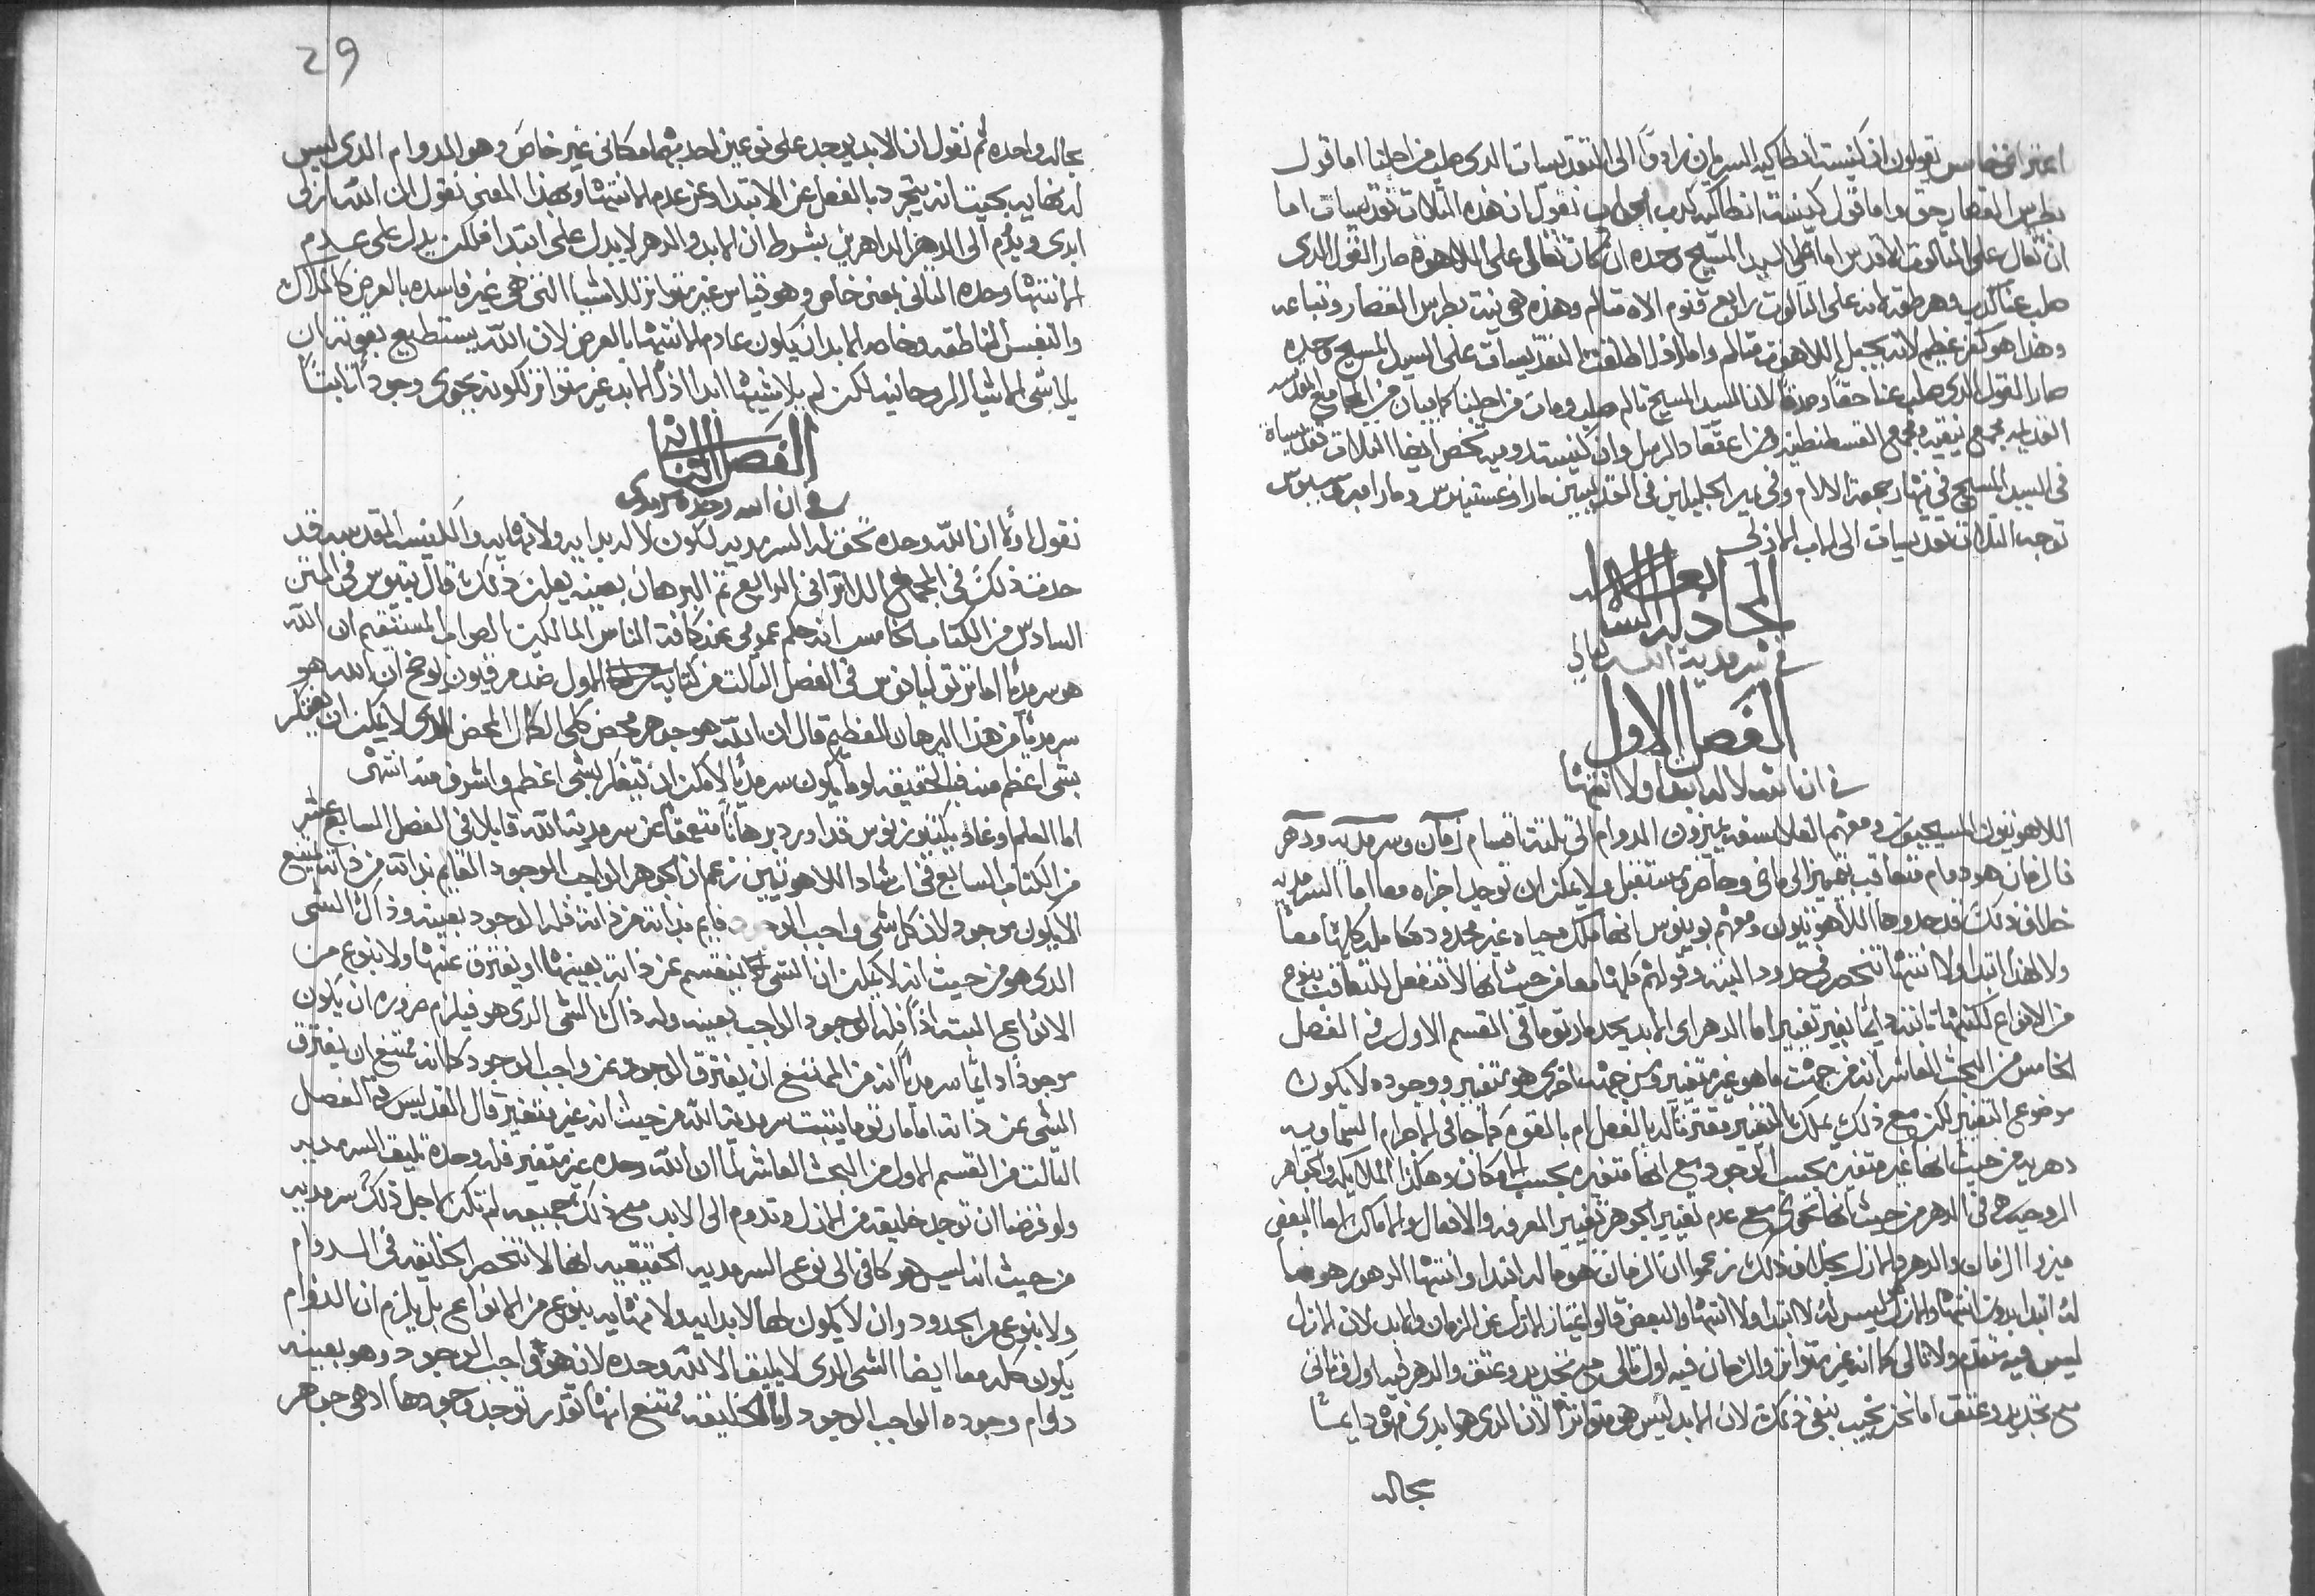 اعتراض خامس تقولون ان كنيسة انطاكيه السريان زادوا الى التقديسات الدي صلب من اجلنا اما قول
بطرس القصار حق واما قول كنيسة انطاكيه كدب الجواب نقول ان هذه التلات تقديسات اما
ان تقال على التالوت الاقدس اما على السيد المسيح وحده ان كان تقال على اللاهوت صار القول الدي
صلب عنا كدب وهرطقه لانه على التالوت رابع قنوم الاه متالم وهذه هي نيت بطرس القصار وتباعه
وهذا هو كفر عظيم لانه يجعل اللاهوت متالم واما اطلقت التقديسات على السيد المسيح وحده
صار القول الدي صلب عنا حقا وصدقا لان السيد المسيح تالم وصلب ومات من اجلنا كما يبان من المجامع المقدسه
القديمه مجمع نيقيه ومجمع القسطنطينيه ومن اعتقاد الرسل وان كنيسة روميه تخص ايضا التلات تقديساة
في السيد المسيح في نهار جمعة الالام وفي غير الجليلين في القديسين مار اوغسطينوس ومار امبروسيوس
توجه التلات تقديسات الى الاب الازلي
المجادله السابعه
في سرمدية الله تعالي
الفصل الاول
في ان الله لا له ابتدا ولا انتها
اللاهوتيون المسيحيون ومعهم الفلاسفه يميزون الدوام الى تلتة اقسام زمان وسرمديه ودهر
فالزمان هو دوام متعاقب متميز الى ماضي وحاضر ومستقبل ولا يمكن ان توجد اجزاه معا اما السرمديه
خلاف ذلك قد حدوها اللاهوتيون ومعهم بويتوس انها ملك حياه غير محدوده كامله كلها معا
ولا لهذا ابتدا ولا انتها تنحصر في حدود البته وقولهم كلها معا من حيث انها لا تنفصل بالتعاقب بنوع
من الانواع لكنها تابته دايما بغير تغيير اما الدهر اي الابد يحده مار توما في القسم الاول في الفصل
الخامس من البحث العاشر انه من جهت ما هو غير متغير ومن جهت اخرى هو متغير ووجوده لا يكون
موضوع التغيير لكن مع ذلك يملك التغيير مقترنا له بالفعل ام بالقوه كما جا في الاجرام السماويه
دهريه من حيث انها غير متغيره بحسب الوجود مع انها متغيره بحسب المكان وهكذا الملايكه والجواهر
الروحيه هي في الدهر من حيث انها تحوي مع عدم تغيير الجوهر تغيير المعرفه والافعال والاماكن اما البعض
ميزوا الزمان والدهر والازل بخلاف ذلك زعموا ان الزمان هو ما له ابتدا وانتها الدهر هو ما
له ابتدا بدون انتها والازل ليس له لا ابتدا ولا انتها والبعض قالوا امتياز الازل عن الزمان والابد لان الازل
ليس فيه متقدم ولا تالي كما انه غير متواتر والزمان فيه اول وتالي مع تجديد وعتق والدهر فيه اول وتاني
مع تجديد وعتق اما نحن نجيب بنفي ذلك لان الابد ليس هو متواتر لان الدي هو ابدي فهو دايما
بحاله
29
بحاله واحده ثم نقول ان الابد يوجد على نوعين احدهما مكاني غير خاص وهو الدوام الدي ليس
له نهايه بحيت انه يتجرد بالفعل عن الابتدا وعن عدم الانتها وبهذا المعنى نقول ان الله ازلي
ابدي ويدوم الى الدهر الداهرين بشرط ان الابد والدهر لا يدل على ابتدا فلكن يدل على عدم
الانتها وحده التاني بمعنى خاص وهو قياس غير متواتر للاشيا التي هي غير فاسده بالعرض كالملاك
والنفس الناطقه وخاصه الابد ان يكون عادم الانتها بالعرض لان الله يستطيع بقوته ان
يلاشي الاشيا الروحانيه لكن لم يلاشيها ابدا اذا الابد غير متواتر لكونه يحوي وجودا تابتا
الفصل التاني
في ان الله وحده سرمدي
نقول اولا ان الله وحده تحق له السرمديه لكون لا له بدايه ولا نهايه والكنيسه المقدسه قد
حددت ذلك في المجمع اللاتراني الرابع تم البرهان بعينه يعلن ذلك قال بتيوس في المتن
السادس من الكتاب الخامس انه حكم عمومي عند كافة الناس المالكين الصواب المستقيم ان الله
هو سرمديا اما ترتوليانوس في الفصل التالت من كتابه الاول ضد مرقيون يوضح ان الله هو
سرمديا من هذا البرهان العظيم قال ان الله هو جوهر محض كلي الكمال المحض الدي لا يمكن ان يفتكر
بشي اعظم منه فبالحقيقه لو ما يكون سرمديا لامكن ان تفتكر بشي اعظم واشرف منه انتهى
اما العلما وغاد يكتنوزيوس قد اورد برهانا متعمقا عن سرمدية الله قايلا في الفصل السابع عشر
من الكتاب السابع في ارشاد اللاهوتيين زعم ان الجوهر الواجب الوجود القايم بذاته من ذاته يمتنع
الا يكون موجود لان كل شي واجب الوجود قايم بذاته من ذاته فله الوجود بعينه وذاك الشي
الدي هو من حيث انه لا يمكن ان الشي ينقسم عن ذاته بعينها او يفترق عنها ولا بنوع من
الانواع البته اذا فله الوجود الواجب بعينه وله ذاك الشي الدي هو فيلزم ضروره ان يكون
موجودا دايما سرمديا لانه من الممتنع ان يفترق الوجود عن واجب الوجود كما انه ممتنع ان يفترق
الشي عن ذاته اما مار توما يتبت سرمدية الله من حيث انه غير متغير قال القديس في الفصل
التالت من القسم الاول من البحث العاشر لما ان الله وحده غير متغير فله وحده تليق السرمديه
ولو فرضنا ان توجد خليقه من الازل وتدوم الى الابد مع ذلك جميعه لم تكن لاجل ذلك سرمديه
من حيث انه ليس هو كافي الى نوع السرمديه الحقيقيه انها لا تنحصر الخليقه في الدوام
ولا بنوع من الحدود وان لا يكون لها لا بدايه ولا نهايه بنوع من الانواع بل يلزم ان الدوام
يكون كله معا ايضا الشي الدي لا يليق الا لله وحده لانه هو واجب الوجود وهو بعينه
دوام وجوده الواجب الوجود اما الخليقه ممتنع انها تقدر توجد وجودها اد هي جوهر